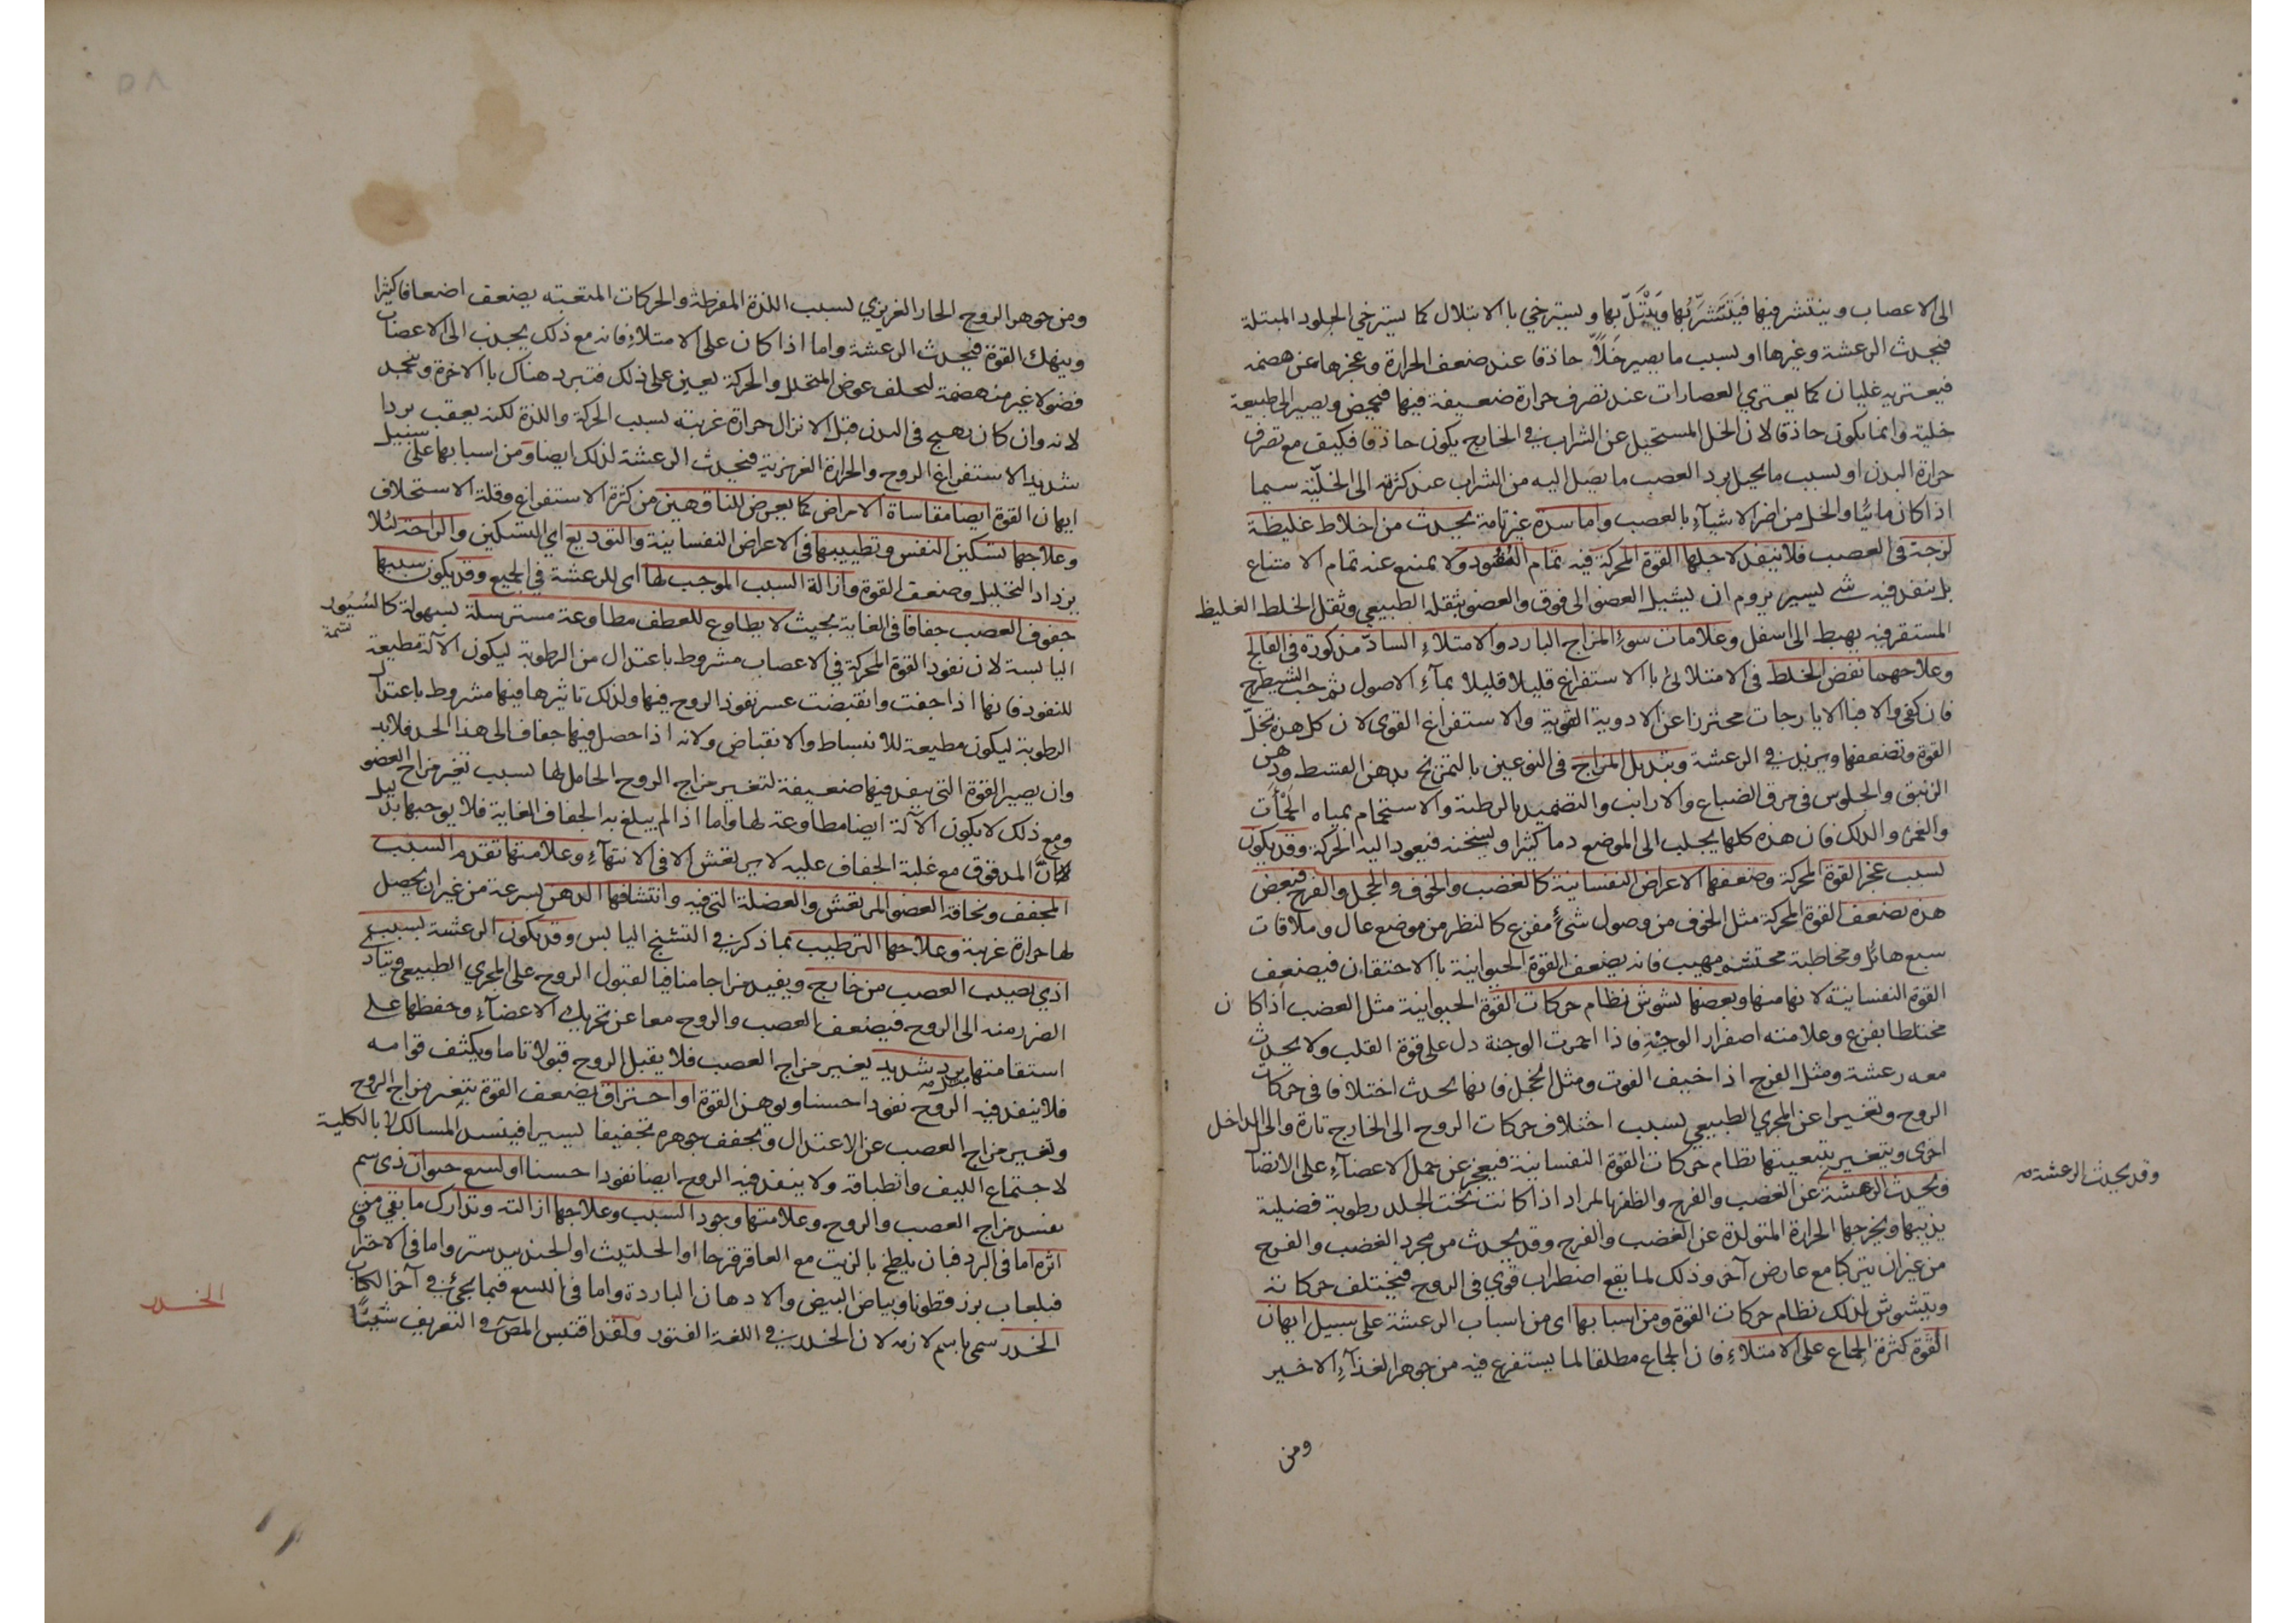 الى الاعصاب وينتشر فيها فتتشربها وتبتل بها ويسترخي بالابتلال كما يسترخي الجلود المبتلة
فيحدث الرعشة وغيرها او بسبب ما يصير خلاً حاذقا عند ضعف الحرارة وعجزها عن هضمه
فيعتريه غليان كما يعتري العصارات عند تصرف حرارة ضعيفة فيها فيحمض ويصير الى طبيعة
خلية وانما يكون حاذقا لان الخل المستحيل عن الشراب في الخارج يكون حاذقا فكيف مع تصرف
حرارة البدن او بسبب ما يحيل برد العصب ما يصل اليه من الشراب عند كثرته الى الخلية سيما
اذا كان مائيا والخل من اضر الاشيآء بالعصب واما سدة غير تامة يحدث من اخلاط غليظة
لزجة في العصب فلا ينفذ لاجلها القوة المحركة فيه تمام النفوذ ولا يمنع عنه تمام الامتناع
بل ينفذ فيه شي يسير يروم ان يشيل العضو الى فوق والعضو بثقله الطبيعي وثقل الخلط الغليظ
المستقر فيه يهبط الى اسفل وعلامات سوء المزاج البارد والامتلاء الساد مذكورة في الفالج
وعلاجهما نفض الخلط في الامتلائ بالاستفراغ قليلا قليلا بمآء الاصول ثم حب الشيطرج
فان كفى والا فبالايارجات محترزا عن الادوية القوية والاستفراغ القوي لان كل هذه تخل
القوة وتضعفها ويزيد في الرعشة وتبديل المزاج في النوعين بالتمريخ بدهن القسط ودهن
الزنبق والجلوس في مرق الضباع والارانب والتضميد بالرطبة والاستحمام بمياه الحمأت
والغمز والدلك فان هذه كلها يجلب الى الموضع دما كثيرا ويسخنه فيعود اليه الحركة وقد يكون
لسبب عجز القوة المحركة وضعفها الاعراض النفسانية كالغضب والخوف والخجل والفرح فبعض
هذه يضعف القوة المحركة مثل الخوف من وصول شئ مفزع كالنظر من موضع عال وملاقات
سبع هائل ومخاطبة محتشم مهيب فانه يضعف القوة الحيوانية بالاحتقان فيضعف
القوة النفسانية لانها منها وبعضها يشوش نظام حركات القوة الحيوانية مثل الغضب اذا كان
مختلطا بفزع وعلامته اصفرار الوجنة فاذا احمرت الوجنة دل على قوة القلب ولا يحدث
معه رعشة ومثل الفرح اذا خيف الفوت ومثل الخجل فانها يحدث اختلافا في حركات
الروح وتغيرا عن المجري الطبيعي بسبب اختلاف حركات الروح الى الخارج تارة والى الداخل
اخرى ويتغير بتبعيتها نظام حركات القوة النفسانية فيعجز عن حمل الاعضآء على الانتصا
وقد يحدث الرعشة
ويحدث الرعشة عن الغضب والفرح والظفر بالمراد اذا كانت تحت الجلد رطوبة فضلية
يذيبها ويخرجها الحرارة المتولدة عن الغضب والفرح وقد يحدث من مجرد الغضب والفرح
من غير ان يتركبا مع عارض آخر وذلك لما يقع اضطراب قوي في الروح فيختلف حركاته
ويتشوش لذلك نظام حركات القوة ومن اسبابها اى من اسباب الرعشة على سبيل ايهان
القوة كثرة الجماع على الامتلاء فان الجماع مطلقا لما يستفرغ فيه من جوهر الغذآء الاخير
ومن
٥٨
ومن جوهر الروح الحار الغريزي بسبب اللذة المفرطة والحركات المتعبة يضعف اضعافا كثيرا
وينهك القوة فيحدث الرعشة واما اذا كان على الامتلاء فانه مع ذلك يجذب الى الاعصاب
فضولا غير منهضمة لتخلف عوض المتحلل والحركة يعين على ذلك فتبرد هناك بالاخرة ويتجمد
لانه وان كان يهيج في البدن قبل الانزال حرارة غريبة بسبب الحركة واللذة لكنه يعقب بردا
شديدا لاستفراغ الروح والحرارة الغريزية فيحدث الرعشة لذلك ايضا ومن اسبابها على سبيل
ايهان القوة ايضا مقاساة الامراض كما يعرض للناقهين من كثرة الاستفراغ وقلة الاستخلاف
وعلاجها تسكين النفس وتطييبها في الاعراض النفسانية والتوديع اي التسكين والراحة لئلا
يزداد التحليل وضعف القوة وازالة السبب الموجب لها اى للرعشة في الجميع وقد يكون سببها
جفوف العصب جفافا في الغاية بحيث لا يطاوع للعطف مطاوعة مسترسلة بسهولة كالسيور
اليابسة لان نفود القوة المحركة في الاعصاب مشروط باعتدال من الرطوبة ليكون الآلة مطيعة
للنفود فانها اذا جفت وانقبضت عسر نفود الروح فيها ولذلك تاثيرها فيها مشروط باعتدال
الرطوبة ليكون مطيعة للانبساط والانقباض ولانه اذا حصل فيها جفاف الى هذا الحد فلابد
وان يصير القوة التي ينفد فيها ضعيفة لتغير مزاج الروح الحامل لها بسبب تغير مزاج العضو
ومع ذلك لا يكون الآلة ايضا مطاوعة لها واما اذا لم يبلغ به الجفاف الغاية فلا يوجبها بدليل
ان المدقوق مع غلبة الجفاف عليه لا يرتعش الا في الانتهآء وعلامتها تقدم السبب
المجفف ونحافة العضو المرتعش والعضلة التي فيه وانتشافها الدهن بسرعة من غير ان يحصل
لها حرارة غريبة وعلاجها الترطيب بما ذكر في التشنج اليابس وقد يكون الرعشة بسبب
اذي يصيب العصب من خارج ويفيد مزاجا منافيا لقبول الروح على المجري الطبيعي ويتاد
الضرر منه الى الروح فيضعف العصب والروح معا عن تحريك الاعضآء وحفظها على
استقامتها برد شديد يغير مزاج العصب فلا يقبل الروح قبولا تاما ويكثف قوامه
فلا ينفذ فيه الروح نفودا حسنا ويوهن القوة او احتراق يضعف القوة بتغير مزاج الروح
وتغير مزاج العصب عن الاعتدال ويجفف جوهره تجفيفا يسيرا فينسد المسالك لا بالكلية
لاجتماع الليف وانطباقه ولا ينفد فيه الروح ايضا نفودا حسنا او لسع حيوان ذى سم
يفسد مزاج العصب والروح وعلامتها وجود السبب وعلاجها ازالته وتدارك ما بقي من
اثره اما في البرد فبان يلطخ بالزيت مع العاقرقرحا او الحلتيث او الجندبيدستر واما في الاحتراق
فبلعاب بزرقطونا وبياض البيض والادهان الباردة واما في اللسع فبما يجئ في آخر الكتاب
الخدر
الخدر سمى باسم لازمه لان الخدر في اللغة الفتور ولقد اقتبس المص في التعريف شيئا